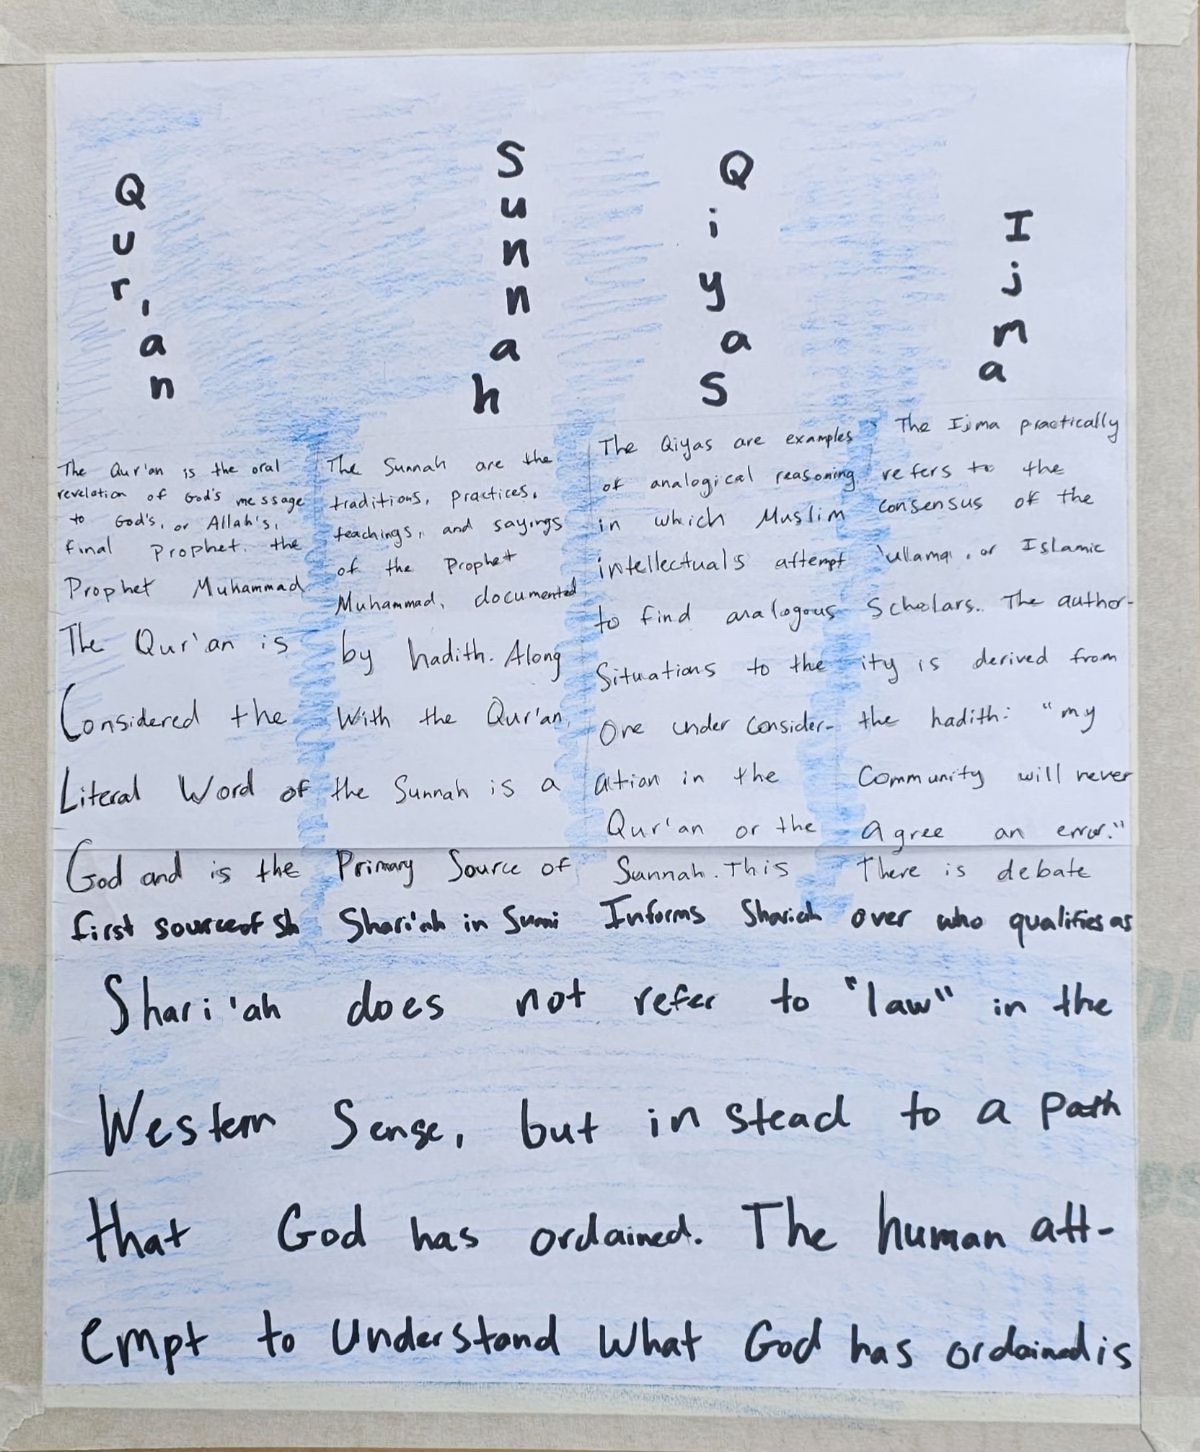 Qur'an
Sunnah
Qiyas
Ijma
The Qur'an is the oral
revelation of God's message
to God's, or Allah's,
final Prophet. the
Prophet Muhammad
The Qur'an is
Considered the
Literal Word of
God and is the
first source of Sh
The Sunnah are the
traditions, practices,
teachings, and sayings
of the Prophet
Muhammad, documented
by hadith. Along
With the Qur'an,
the Sunnah is a
Primary Source of
Shari'ah in Sunni
The Qiyas are examples
of analogical reasoning
in which Muslim
intellectuals attempt
to find analogous
Situations to the
One under consider-
ation in the
Qur'an or the
Sunnah. This
Informs Shariah
The Ijma practically
refers to the
consensus of the
'ullama, or Islamic
Scholars. The author-
ity is derived from
the hadith: "my
Community will never
agree an error."
There is debate
over who qualifies as
Shari'ah does not refer to "law" in the
Western Sense, but instead to a path
that God has ordained. The human att-
empt to Understand What God has ordained is